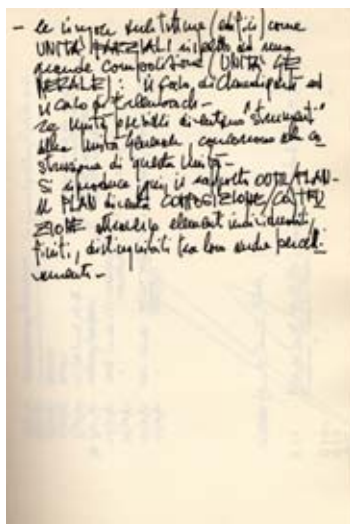 - le singole architetture (edifici) come
UNITÀ PARZIALI rispetto ad una
grande composizione (UNITÀ GE
NERALE): il caso di Chandigarh ed
il caso di
Le Unità parziali diventano "strumenti"
della Unità Generale, concorrono alla co
struzione di questa Unità -
Si riproduce qui il rapporto
il PLAN diventa COMPOSIZIONE/COSTRU
ZIONE attraverso elementi individuati,
finiti, distinguibili tra loro anche